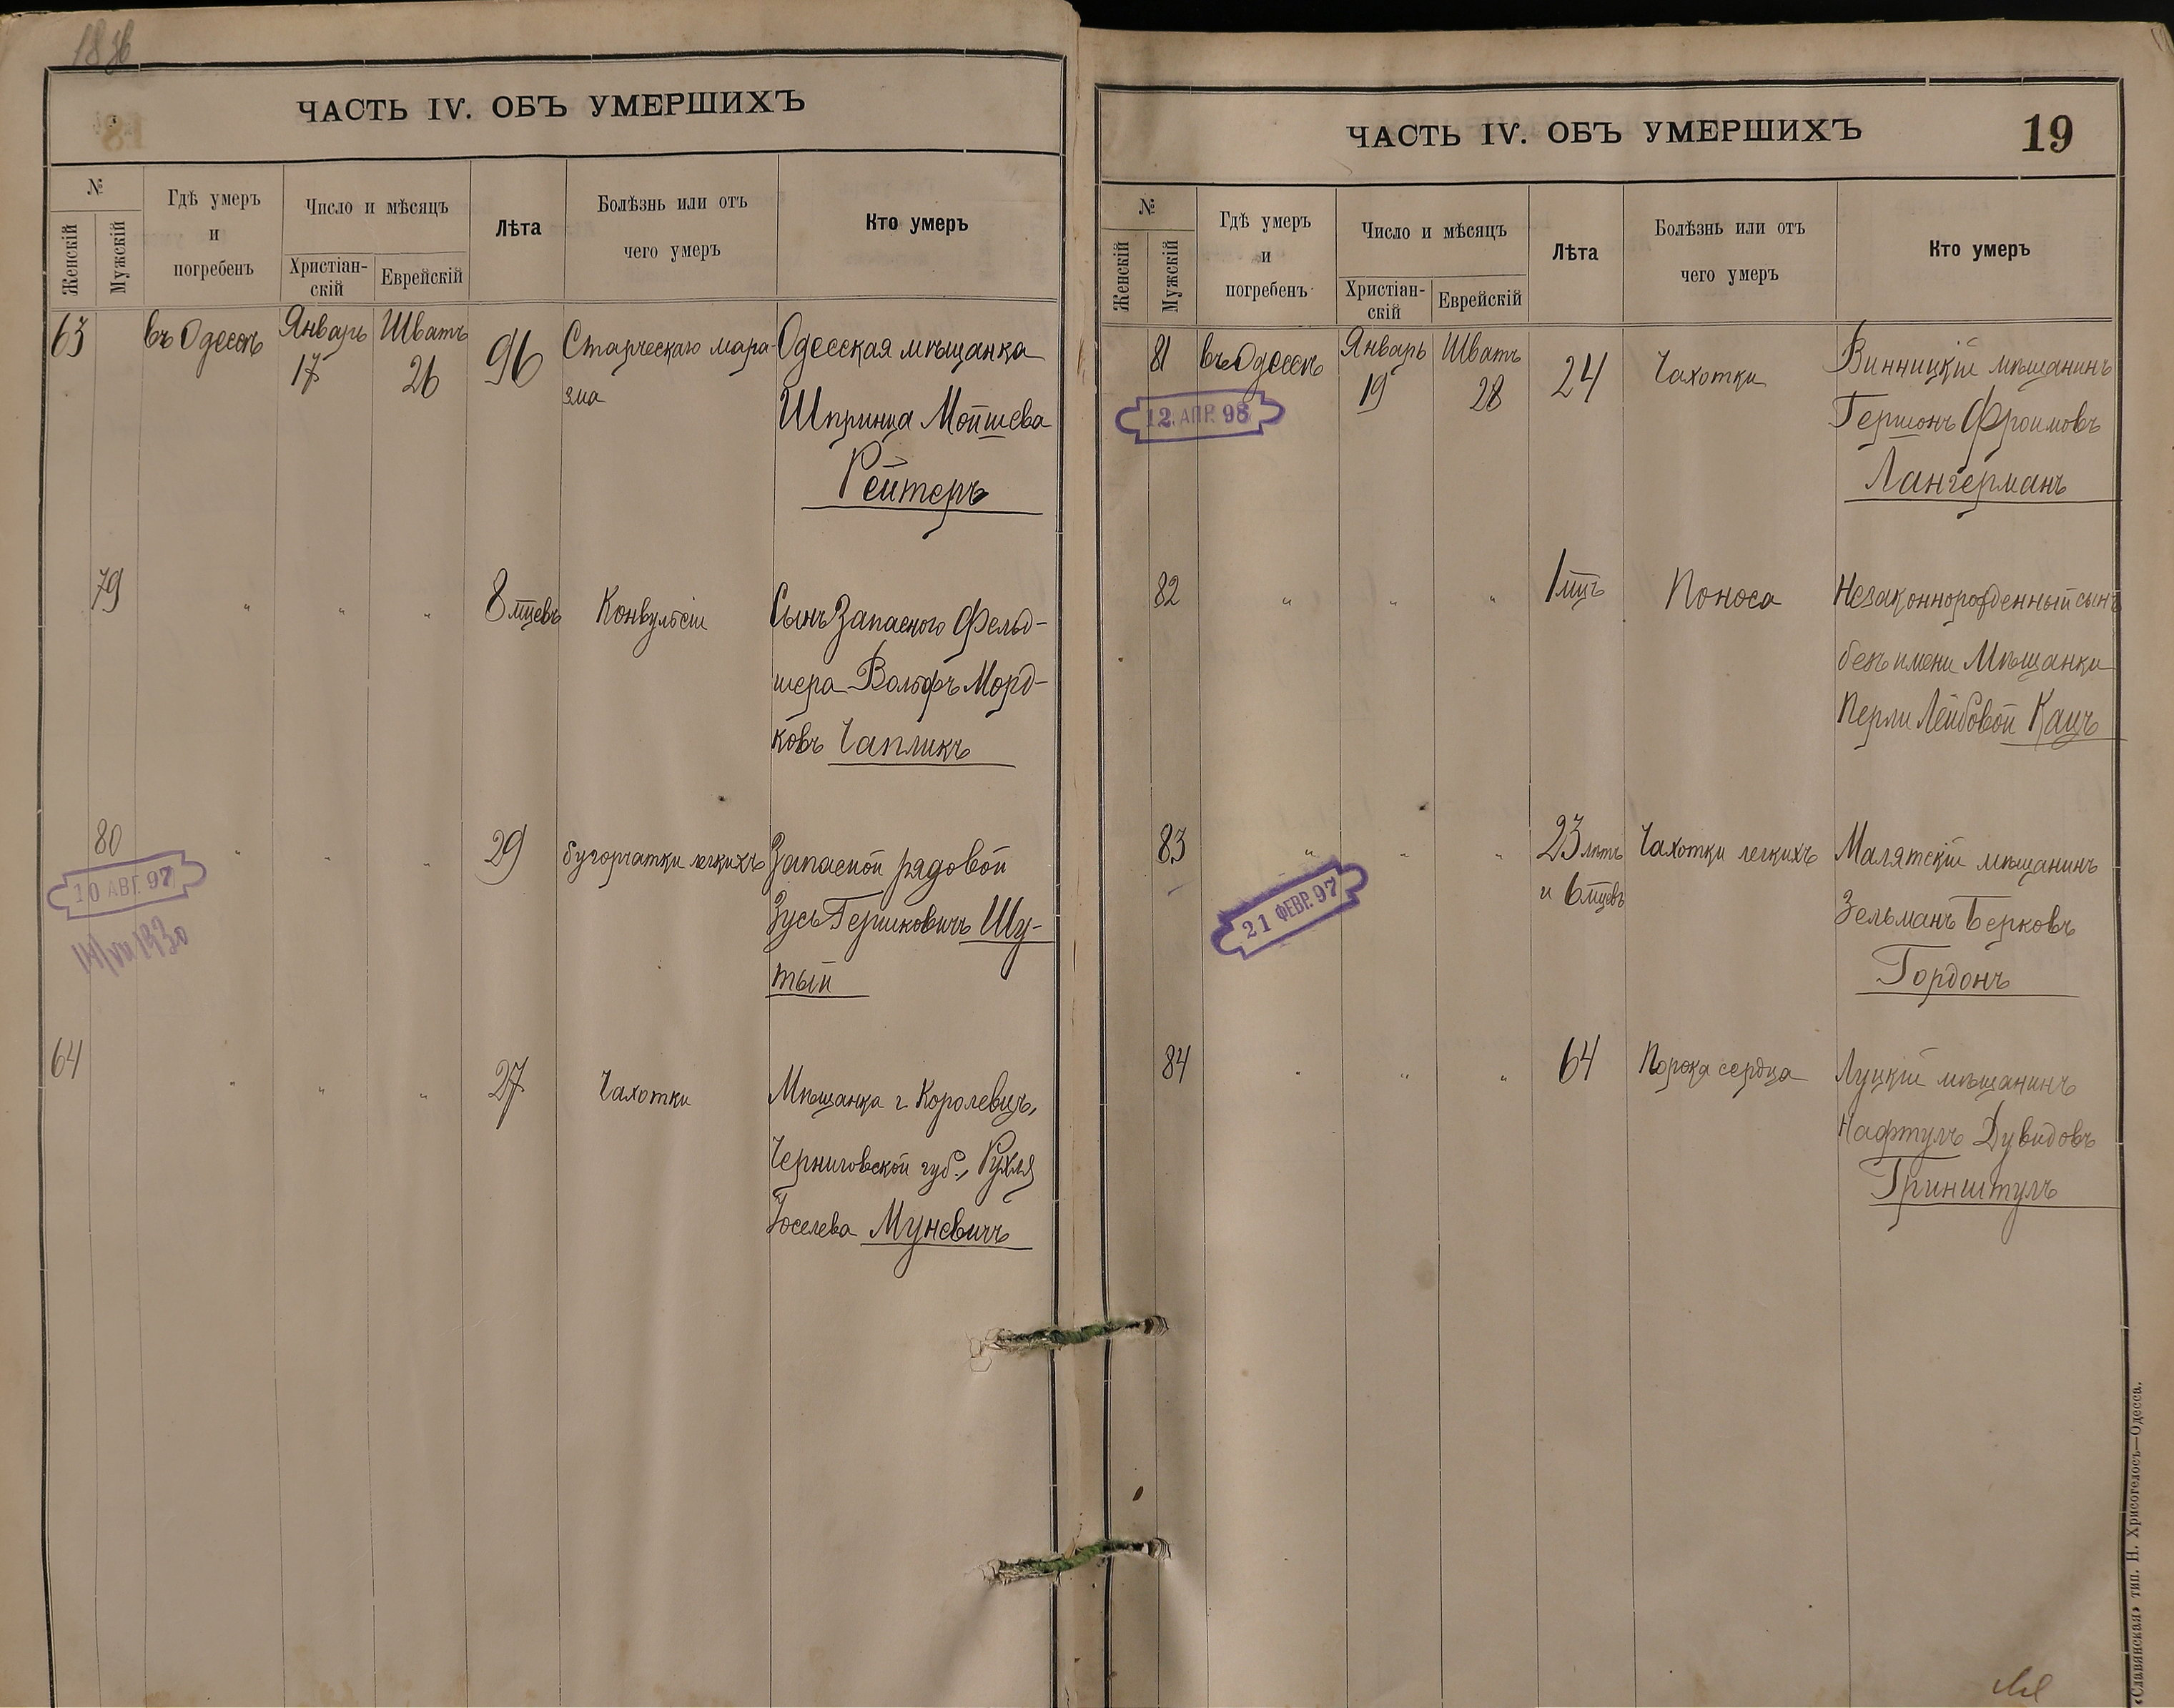 ЧАСТЬ IV. ОБЪ УМЕРШИХЪ
№
Женскій
Мужскій
Гдѣ умеръ
и
погребенъ
Число и мѣсяцъ
Христіан-
скій
Еврейскій
Лѣта
Болѣзнь или отъ
чего умеръ
Кто умеръ
63
въ Одессѣ
Январь
17
Шватъ
26
96
Старческаго мара-
зма
Одесская мѣщанка
Шпринца Мойшева
Рейтеръ
79
"
"
"
8 мцевъ
Конвульсіи
Сынъ Запасного Фельд-
шера Вольфъ Морд-
ковъ Чапликъ
80
"
"
"
29
бугорчатки легкихъ
Запасной рядовой
Зусь Гершковичъ Шу-
тый
10 АВГ. 97
14/VII 1930
64
"
"
"
27
Чахотки
Мѣщанка г. Королевцъ,
Черниговской губ., Рухля
Іоселева Муневичъ
ЧАСТЬ IV. ОБЪ УМЕРШИХЪ
19
№
Женскій
Мужскій
Гдѣ умеръ
и
погребенъ
Число и мѣсяцъ
Христіан-
скій
Еврейскій
Лѣта
Болѣзнь или отъ
чего умеръ
Кто умеръ
81
въ Одессѣ
Январь
19
Шватъ
28
24
Чахотки
Винницкій мѣщанинъ
Гершонъ Фроимовъ
Лангерманъ
12. АПР. 98
82
"
"
"
1 мцъ
Поноса
Незаконнорожденный сынъ
безъ имени Мѣщанки
Перли Лейбовой Кацъ
83
"
"
"
23 лѣтъ
и 6 мцевъ
Чахотки легкихъ
Малятскій мѣщанинъ
Зельманъ Берковъ
Гордонъ
21 ФЕВР. 97
84
"
"
"
64
Порока сердца
Луцкій мѣщанинъ
Нафтулъ Дувидовъ
Гринштулъ
«Славянская» тип. Н. Хрисогелосъ—Одесса.